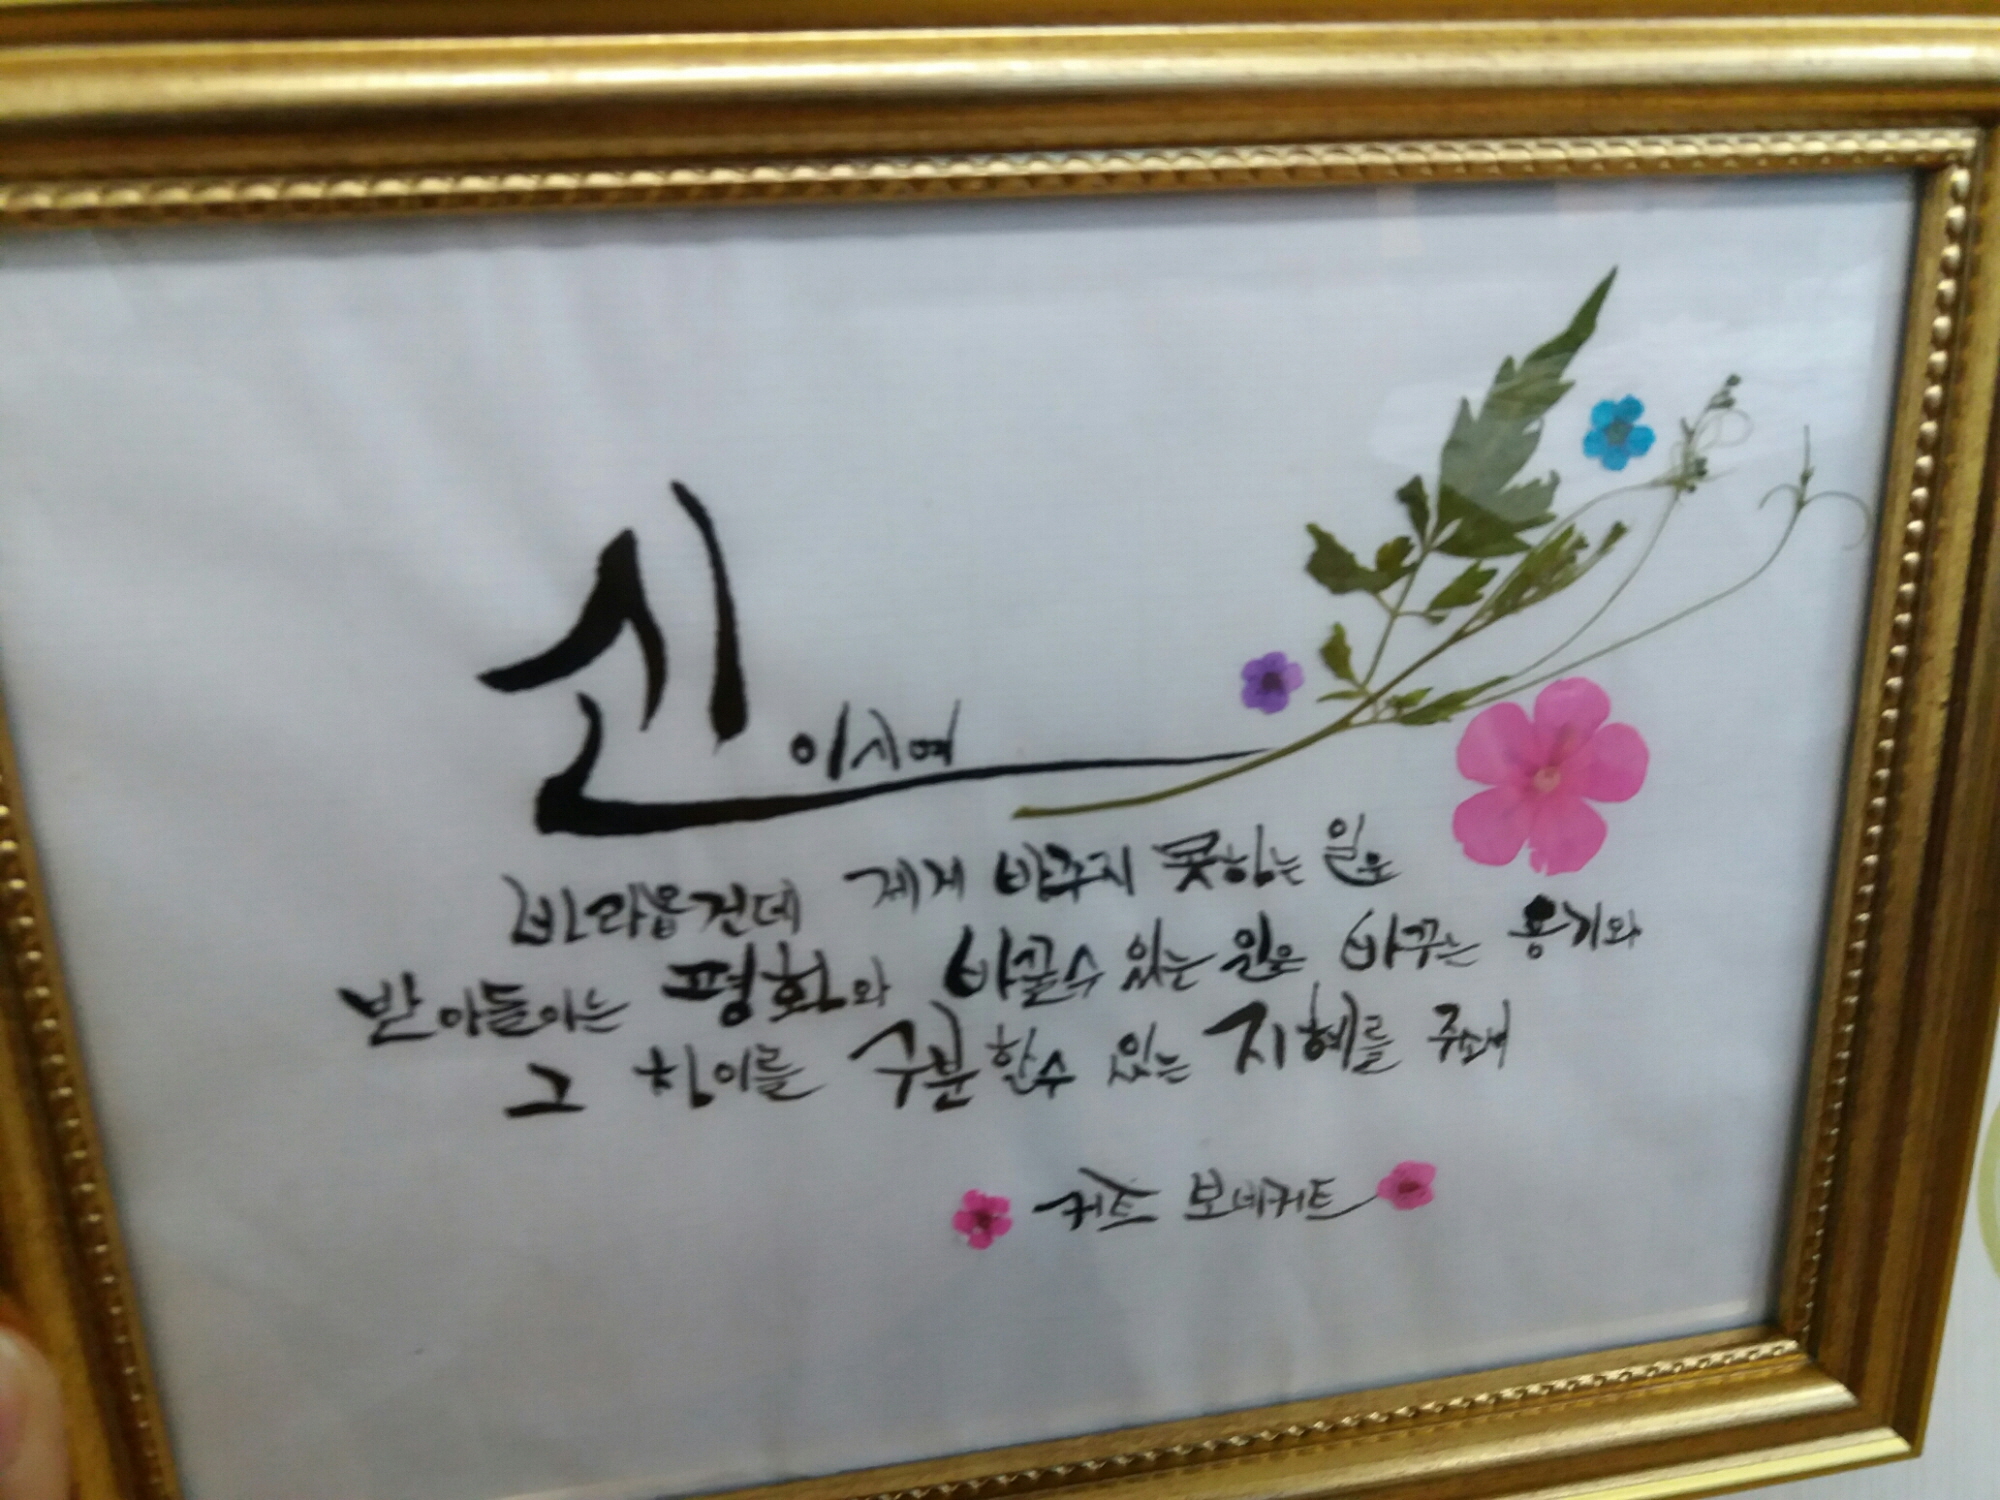 신이시여
바라옵건데 제게 바꾸지 못하는 일을
받아들이는 평화와 바꿀수 있는 일을 바꾸는 용기와
그 차이를 구분할수 있는 지혜를 주소서
커트 보네커트